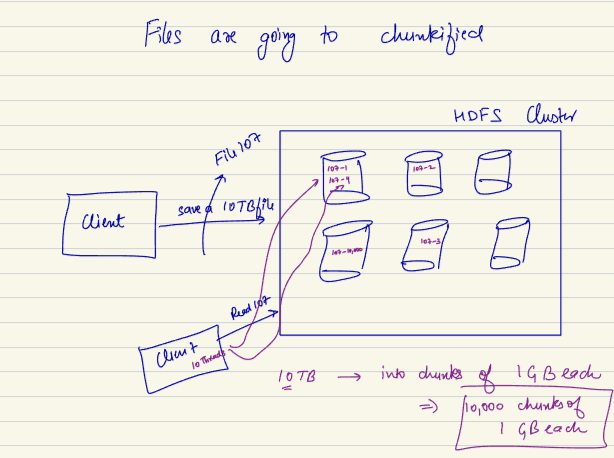 Files are going to chunkified
HDFS Cluster
File 107
107-1
107-4
107-2
Client
save a 10TB file
107-10,000
107-3
Read 107
Client
10 Threads
10TB → into chunks of 1GB each
⇒ 10,000 chunks of
1 GB each